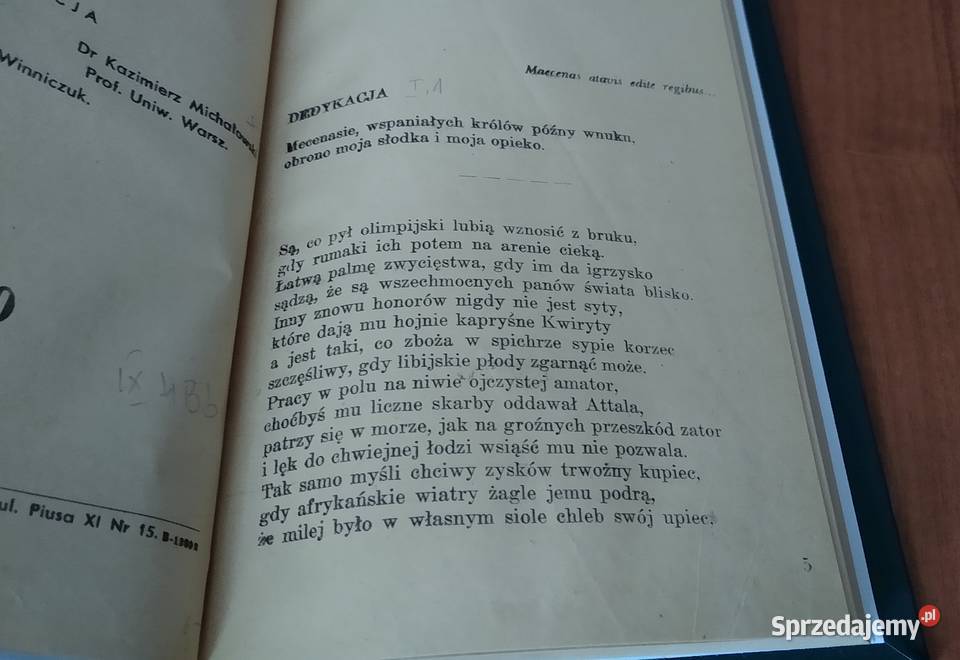 CJA
Dr Kazimierz Michałowski
Prof. Uniw. Warsz.
Winniczuk.
IX 4Bb
ul. Piusa XI Nr 15. B-13802
Maecenas atavis edite regibus...
DEDYKACJA I,1
Mecenasie, wspaniałych królów późny wnuku,
obrono moja słodka i moja opieko.
Są, co pył olimpijski lubią wznosić z bruku,
gdy rumaki ich potem na arenie cieką.
Łatwą palmę zwycięstwa, gdy im da igrzysko
sądzą, że są wszechmocnych panów świata blisko.
Inny znowu honorów nigdy nie jest syty,
które dają mu hojnie kapryśne Kwiryty
a jest taki, co zboża w spichrze sypie korzec
szczęśliwy, gdy libijskie płody zgarnąć może.
Pracy w polu na niwie ojczystej amator,
choćbyś mu liczne skarby oddawał Attala,
patrzy się w morze, jak na groźnych przeszkód zator
i lęk do chwiejnej łodzi wsiąść mu nie pozwala.
Tak samo myśli chciwy zysków trwożny kupiec,
gdy afrykańskie wiatry żagle jemu podrą,
że milej było w własnym siole chleb swój upiec.
5
Sprzedajemy.pl